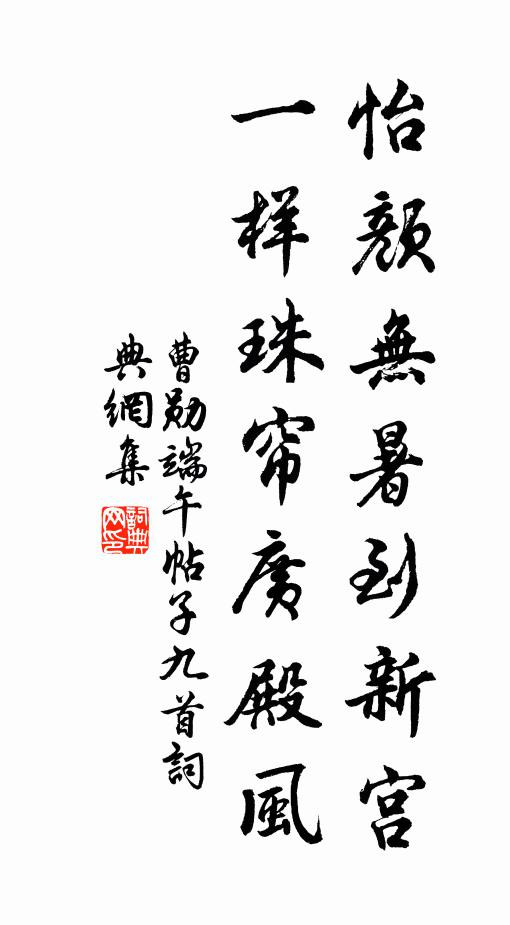 怡顏無暑到新宫
一样珠帘廣殿風
曹勛端午帖子九首詞
典網集
詞典網印